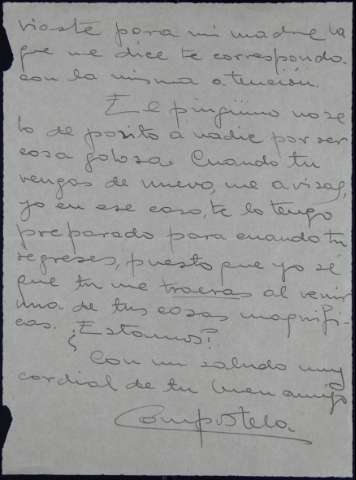 viaste para mi madre la
que me dice te correspondo
con la misma atención.
El pingüino no se
lo deposito a nadie por ser
cosa golosa. Cuando tu
vengas de nuevo, me avisas,
yo en ese caso, te lo tengo
preparado para cuando tu
regreses, puesto que yo sé
que tu me traeras al venir
una de tus cosas magnifi-
cas. ¿Estamos?
Con un saludo muy
cordial de tu buen amigo
Compostela